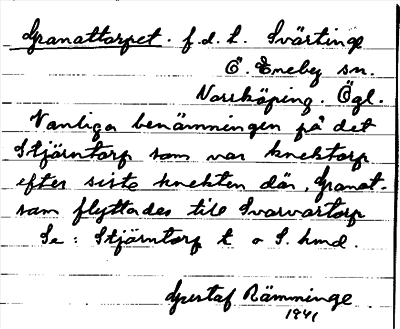 Granattorpet. f.d.t. Svärtinge
Ö. Eneby sn.
Norrköping. Ögl.
Vanliga benämningen på det
Stjärntorp som var knektorp
efter siste knekten där, Granat.
som flyttades till Svarvartorp
Se: Stjärntorp t o S. hmd.
Gustaf Rämminge
1941